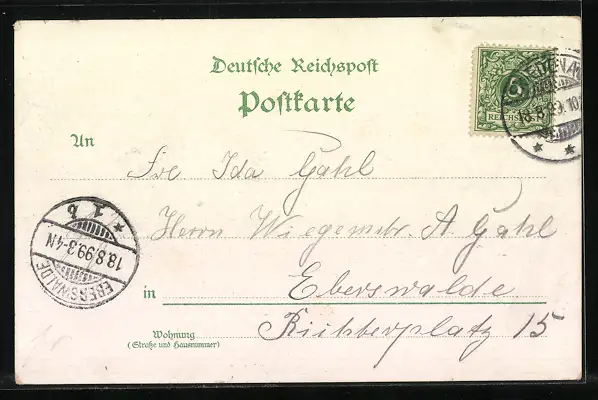 Deutsche Reichspost
Postkarte
An Fre Ida Gahl
Herrn Wiegemstr. A. Gahl
in Eberswalde
Wohnung
(Straße und Hausnummer)
platz 15
5
REICHSPOST
18.8.99. 10
EBERSWALDE
18.8.99.3-4N
1 b